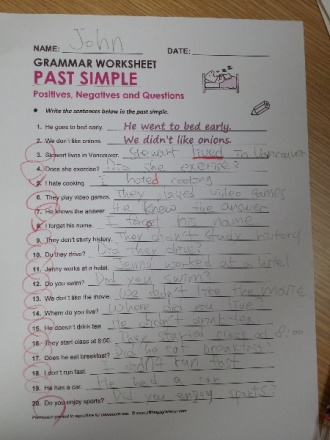 NAME: John DATE:
GRAMMAR WORKSHEET
PAST SIMPLE
Positives, Negatives and Questions
Write the sentences below in the past simple.
1. He goes to bed early. He went to bed early.
2. We don't like onions. We didn't like onions.
3. Stewart lives in Vancouver. Stewart lived in Vancouver
4. Does she exercise? Did she exercise?
5. I hate cooking. I hated cooking
6. They play video games. They played video games
7. He knows the answer. He knew the answer
8. I forget his name. forgot his name
9. They don't study history. They didn't study history
10. Do they drive? Did they drive?
11. Jenny works at a hotel. Jenny worked at a hotel
12. Do you swim? Did you swim?
13. We don't like the movie. We didn't like the movie
14. Where do you live? Where did you live
15. He doesn't drink tea. He didn't drink tea
16. They start class at 8:00. They started class at 8:00
17. Does he eat breakfast? Did he eat breakfast?
18. I don't run fast. didn't run fast
19. He has a car. He had a car
20. Do you enjoy sports? Did you enjoy sports?